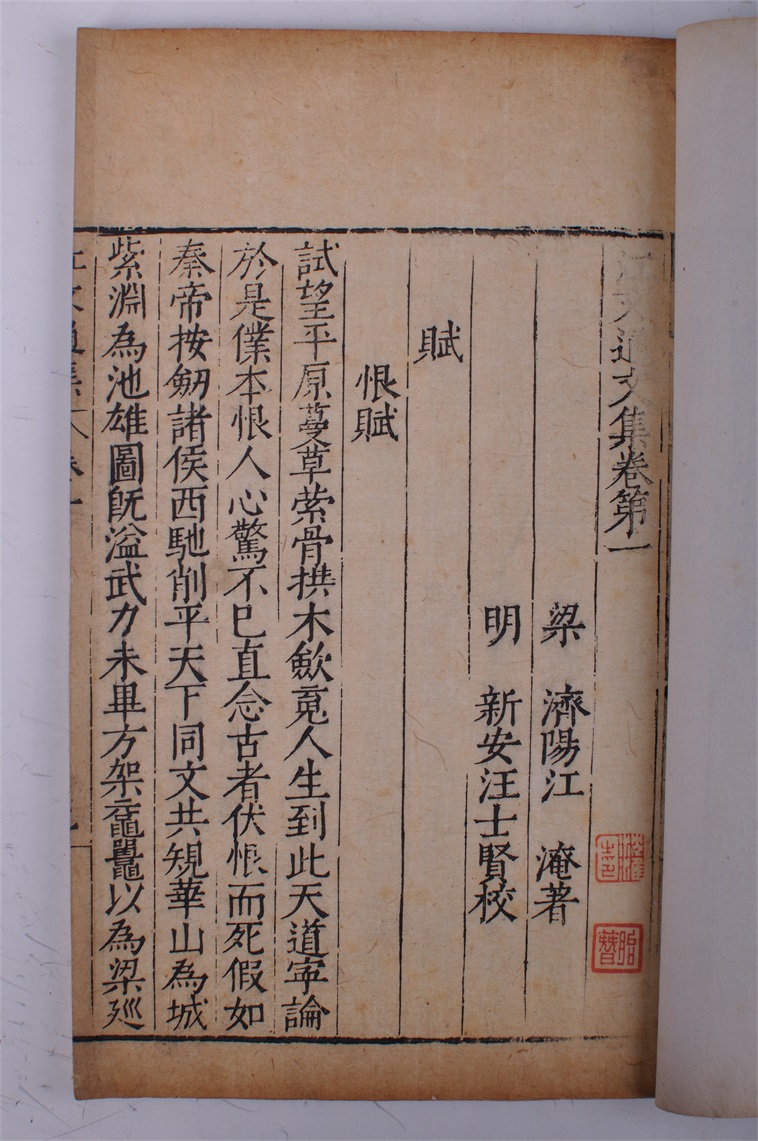 江文通文集卷第一
梁 濟陽江 淹著
明 新安汪士賢校
賦
恨賦
試望平原蔓草縈骨拱木歛䰟人生到此天道寕論
於是僕本恨人心驚不已直念古者伏恨而死假如
秦帝按劒諸侯西馳削平天下同文共規華山為城
紫淵為池雄圖旣溢武力未畢方架黿鼉以為梁廵
江文通集 卷一